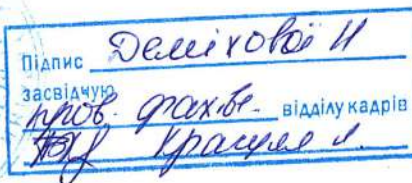 Підпис Деміхової Н
засвідчую
пров. фахів. відділу кадрів